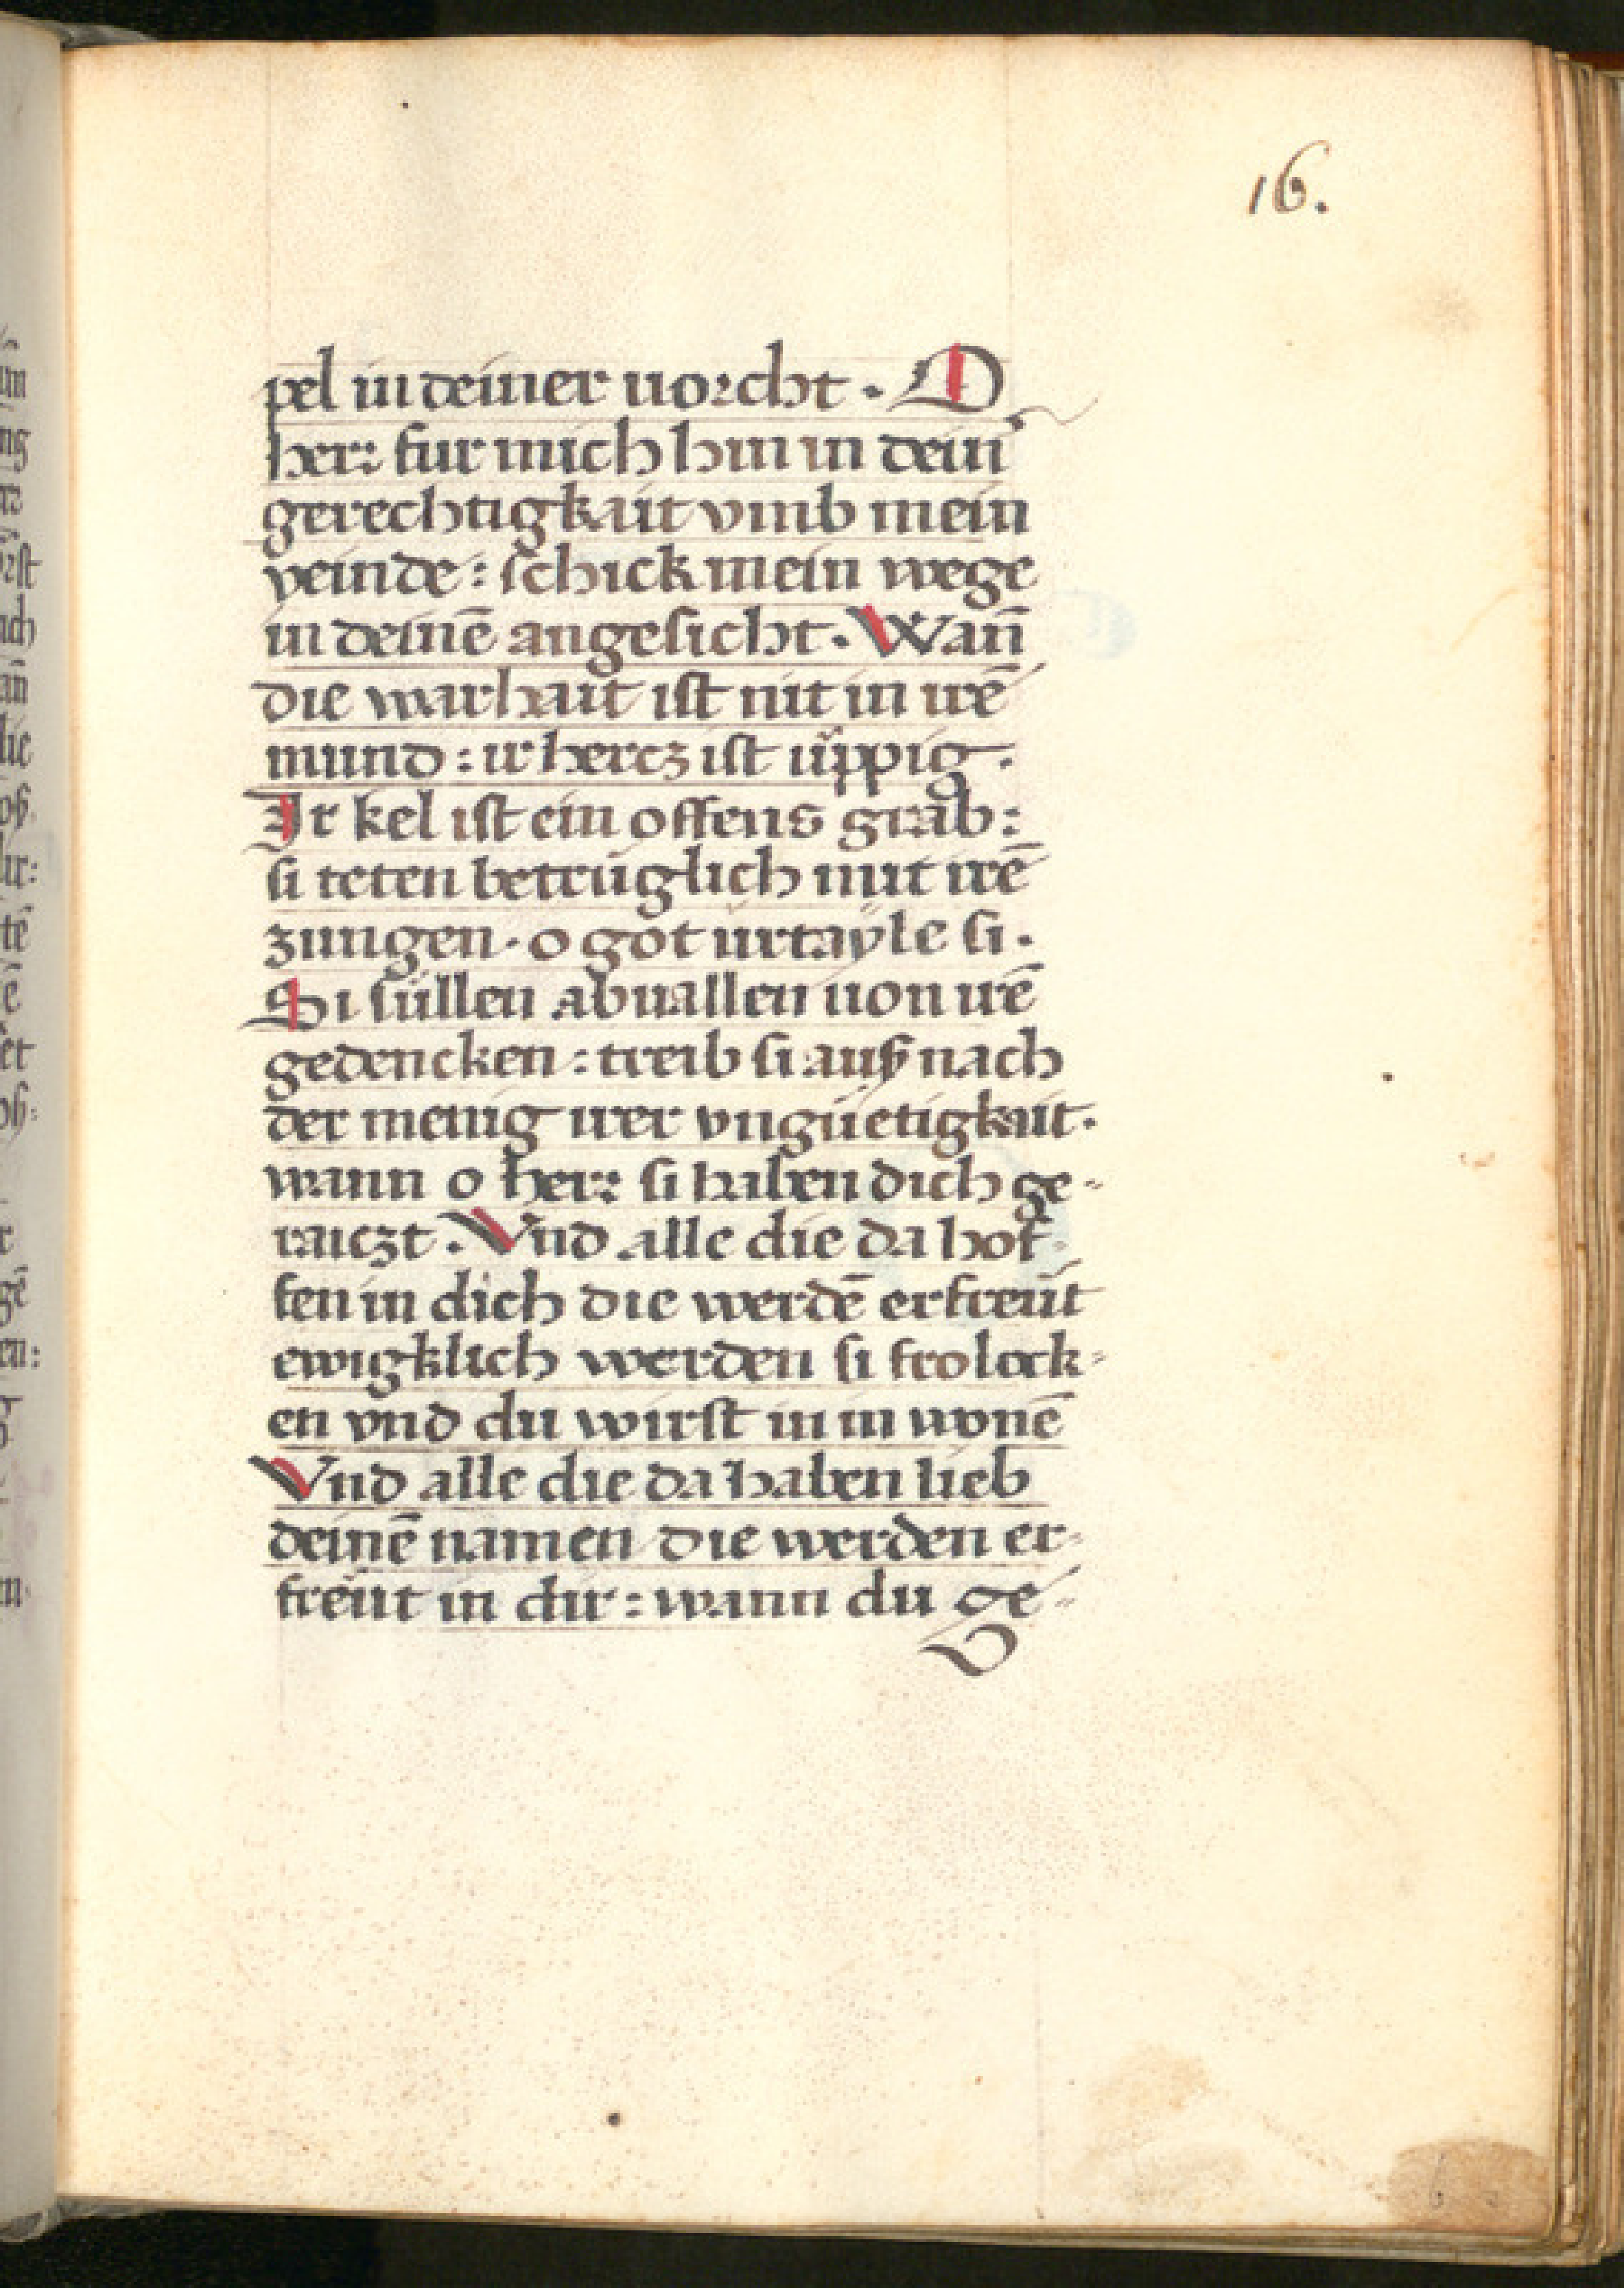 16.
pel in deiner uorcht · O
herr fur mich hin in dein
gerechtigkait vmb mein
veinde : schick mein wege
in deinē angesicht · Wan̄
die warhait ist nit in irē
mund : ir hercz ist üppig ·
Ir kel ist ein offens grab :
si teten betrüglich mit irē
zungen · o got urtayle si ·
Si süllen abuallen uon irē
gedencken : treib si auß nach
der menig irer vngüetigkait ·
wann o herr si haben dich ge-
raiczt · Vnd alle die da hof-
fen in dich die werdē erfreüt
ewigklich werden si frolock-
en vnd du wirst in in wonē
Vnd alle die da haben lieb
deinē namen die werden er-
freüt in dir : wann du ge-